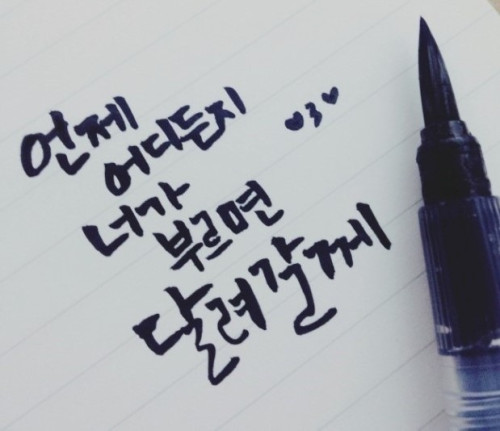 언제
어디든지
너가
부르면
달려갈께
♥3♥